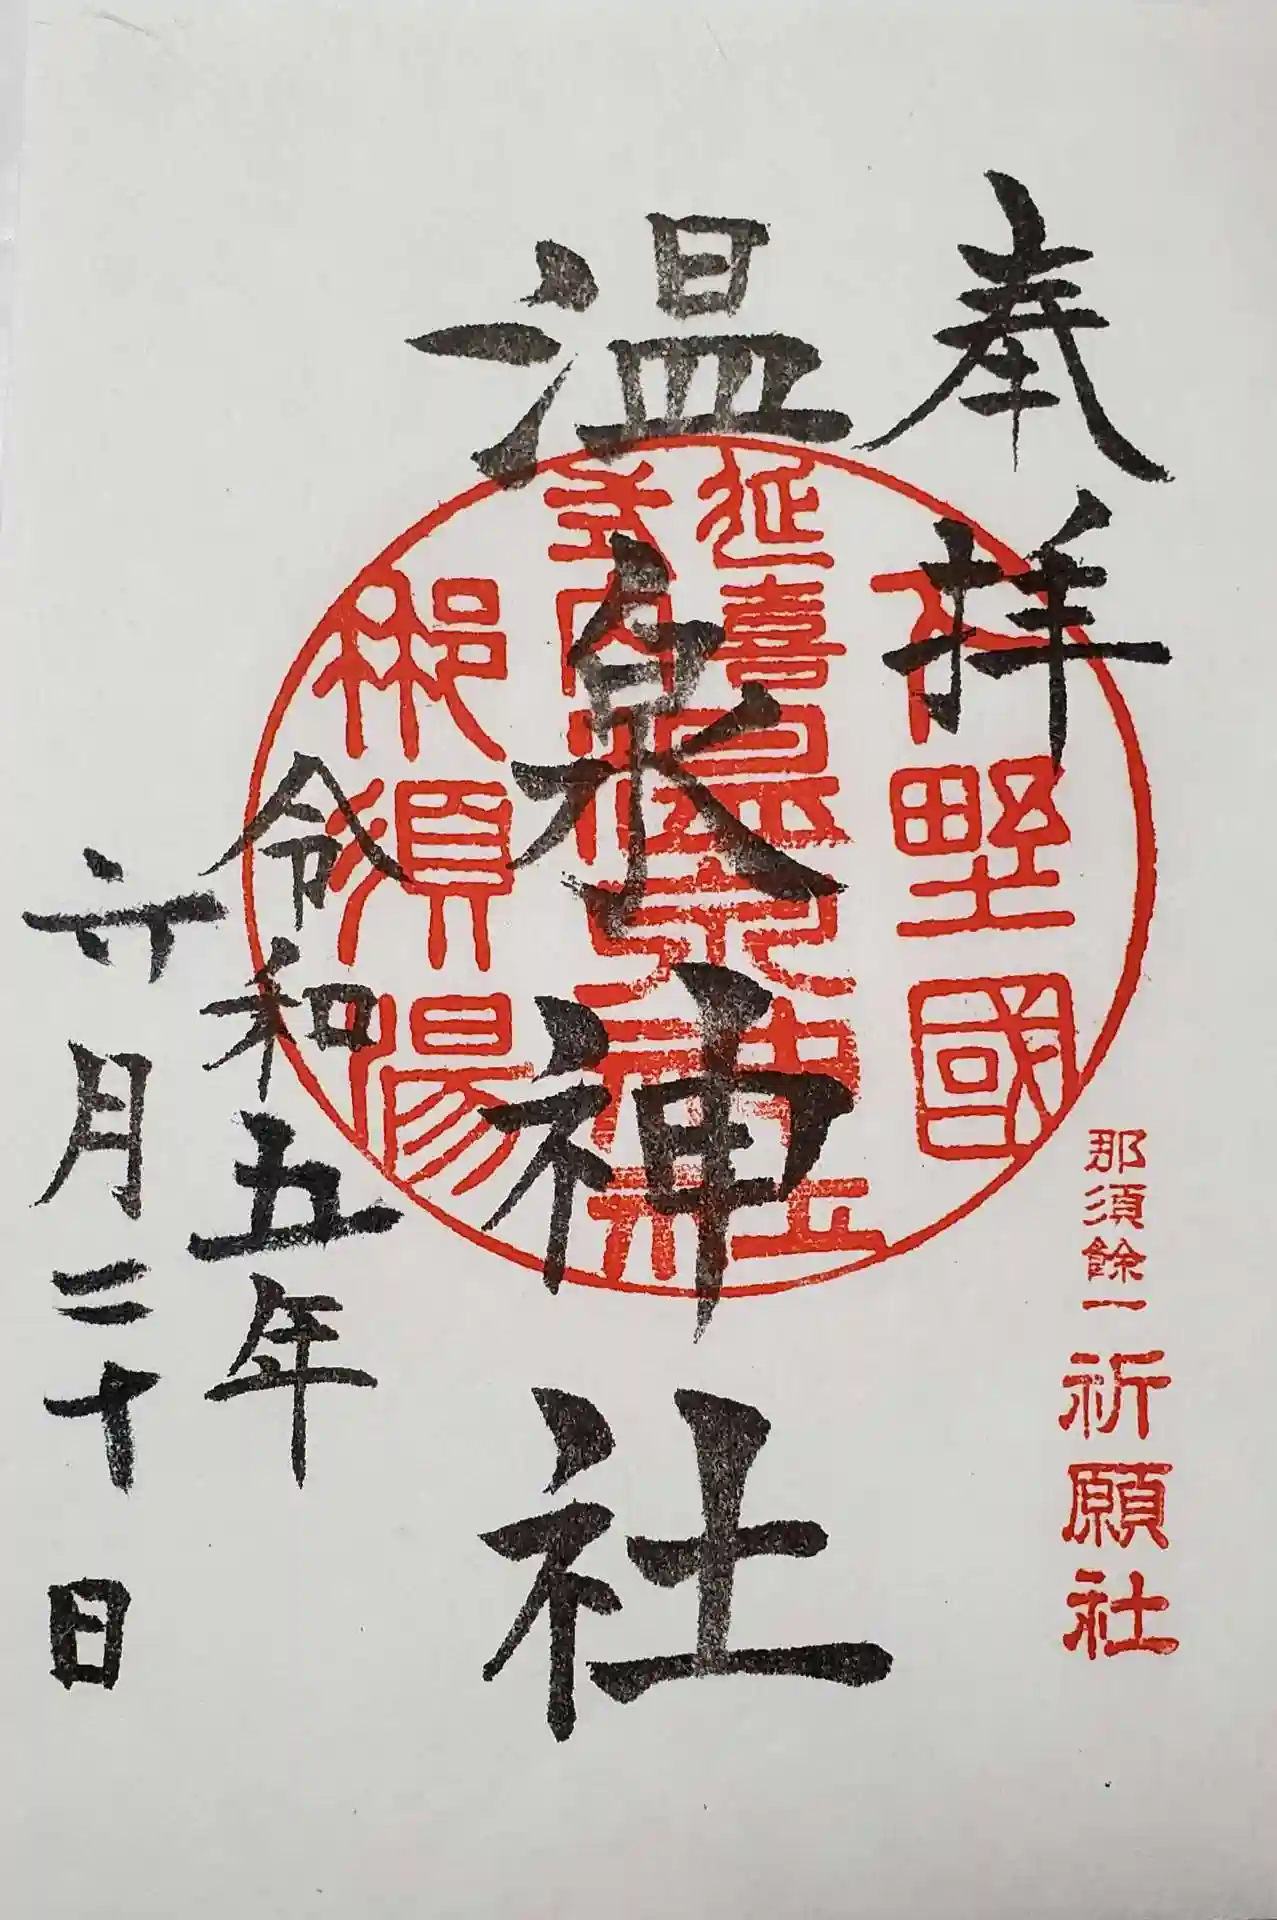 奉拝
下野國
延喜
式内
温泉神社
那須湯
温泉神社
令和五年
六月三十日
那須餘一
祈願社